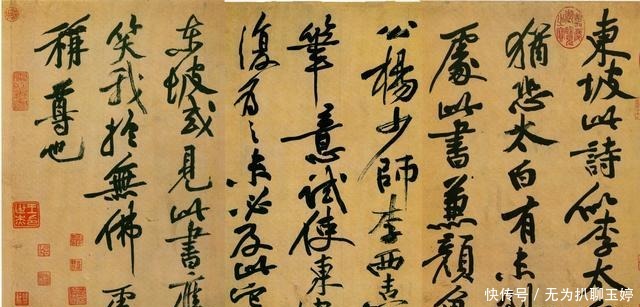 東坡此詩似李太
猶恐太白有未
處此書兼顏
公楊少師李西臺
筆意試使東
復為之未必及此它
東坡或見此書應
笑我於無佛處
稱尊也
快传号 / 无为扒聊玉婷